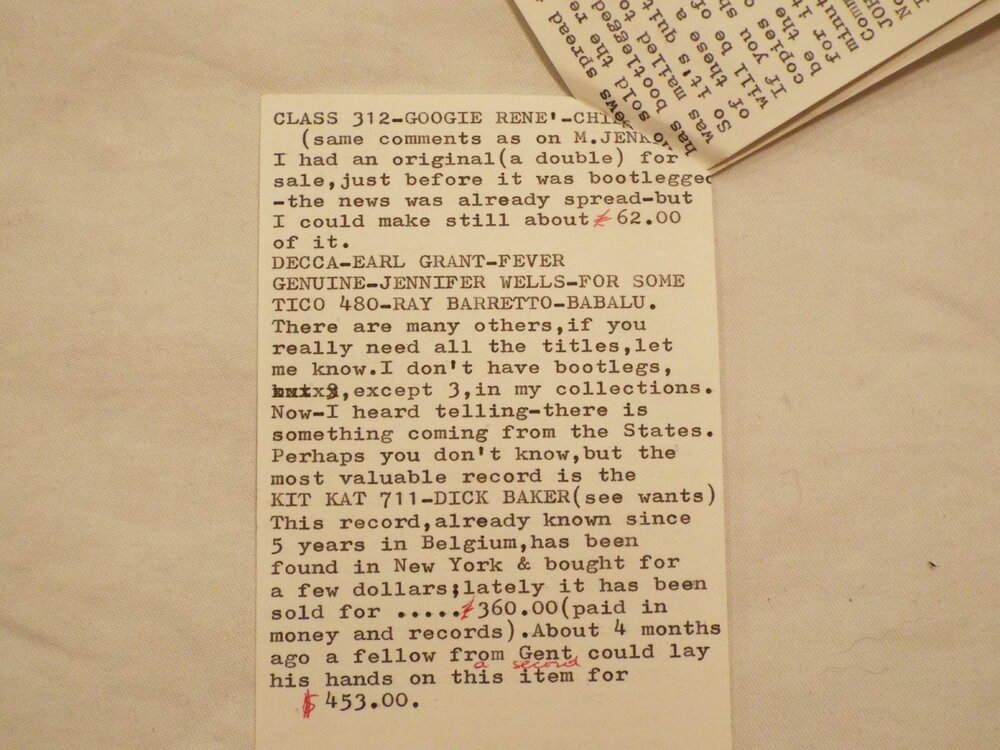 CLASS 312-GOOGIE RENE'-CHI
(same comments as on M.JENK
I had an original(a double) for
sale,just before it was bootlegged
-the news was already spread-but
I could make still about $ 62.00
of it.
DECCA-EARL GRANT-FEVER
GENUINE-JENNIFER WELLS-FOR SOME
TICO 480-RAY BARRETTO-BABALU.
There are many others,if you
really need all the titles,let
me know.I don't have bootlegs,
,except 3,in my collections.
Now-I heard telling-there is
something coming from the States.
Perhaps you don't know,but the
most valuable record is the
KIT KAT 711-DICK BAKER(see wants)
This record,already known since
5 years in Belgium,has been
found in New York & bought for
a few dollars;lately it has been
sold for .....$360.00(paid in
money and records).About 4 months
ago a fellow from Gent could lay
a second
his hands on this item for
$ 453.00.
ews spread
o sold the re
has bootlegged
was mailed to
So it's quit
of these a
will be of
If you sh
copies o
be the
for it
minut
Comm
JOH
No